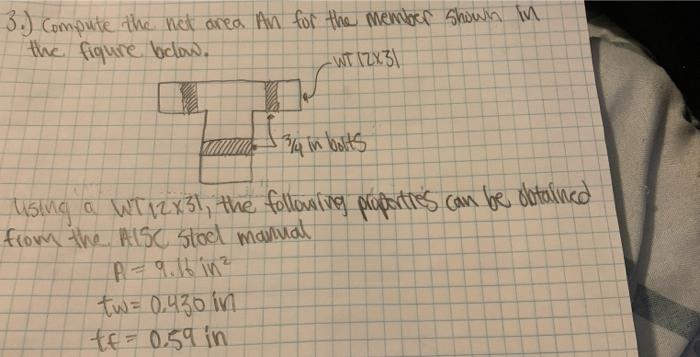 3.) Compute the net area An for the member shown in
the figure below.
WT 12x31
3/4 in bolts
Using a WT12x31, the following properties can be obtained
from the AISC steel manual
A = 9.16 in²
tw = 0.430 in
tf = 0.59 in